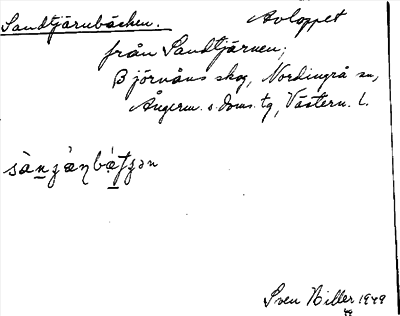 Sandtjärnbäcken. Avloppet
från Sandtjärnen;
Björnåns skog, Nordingrå sn,
Ångerm. s. doms. tg, Västern. l.
Sven Hiller 1949